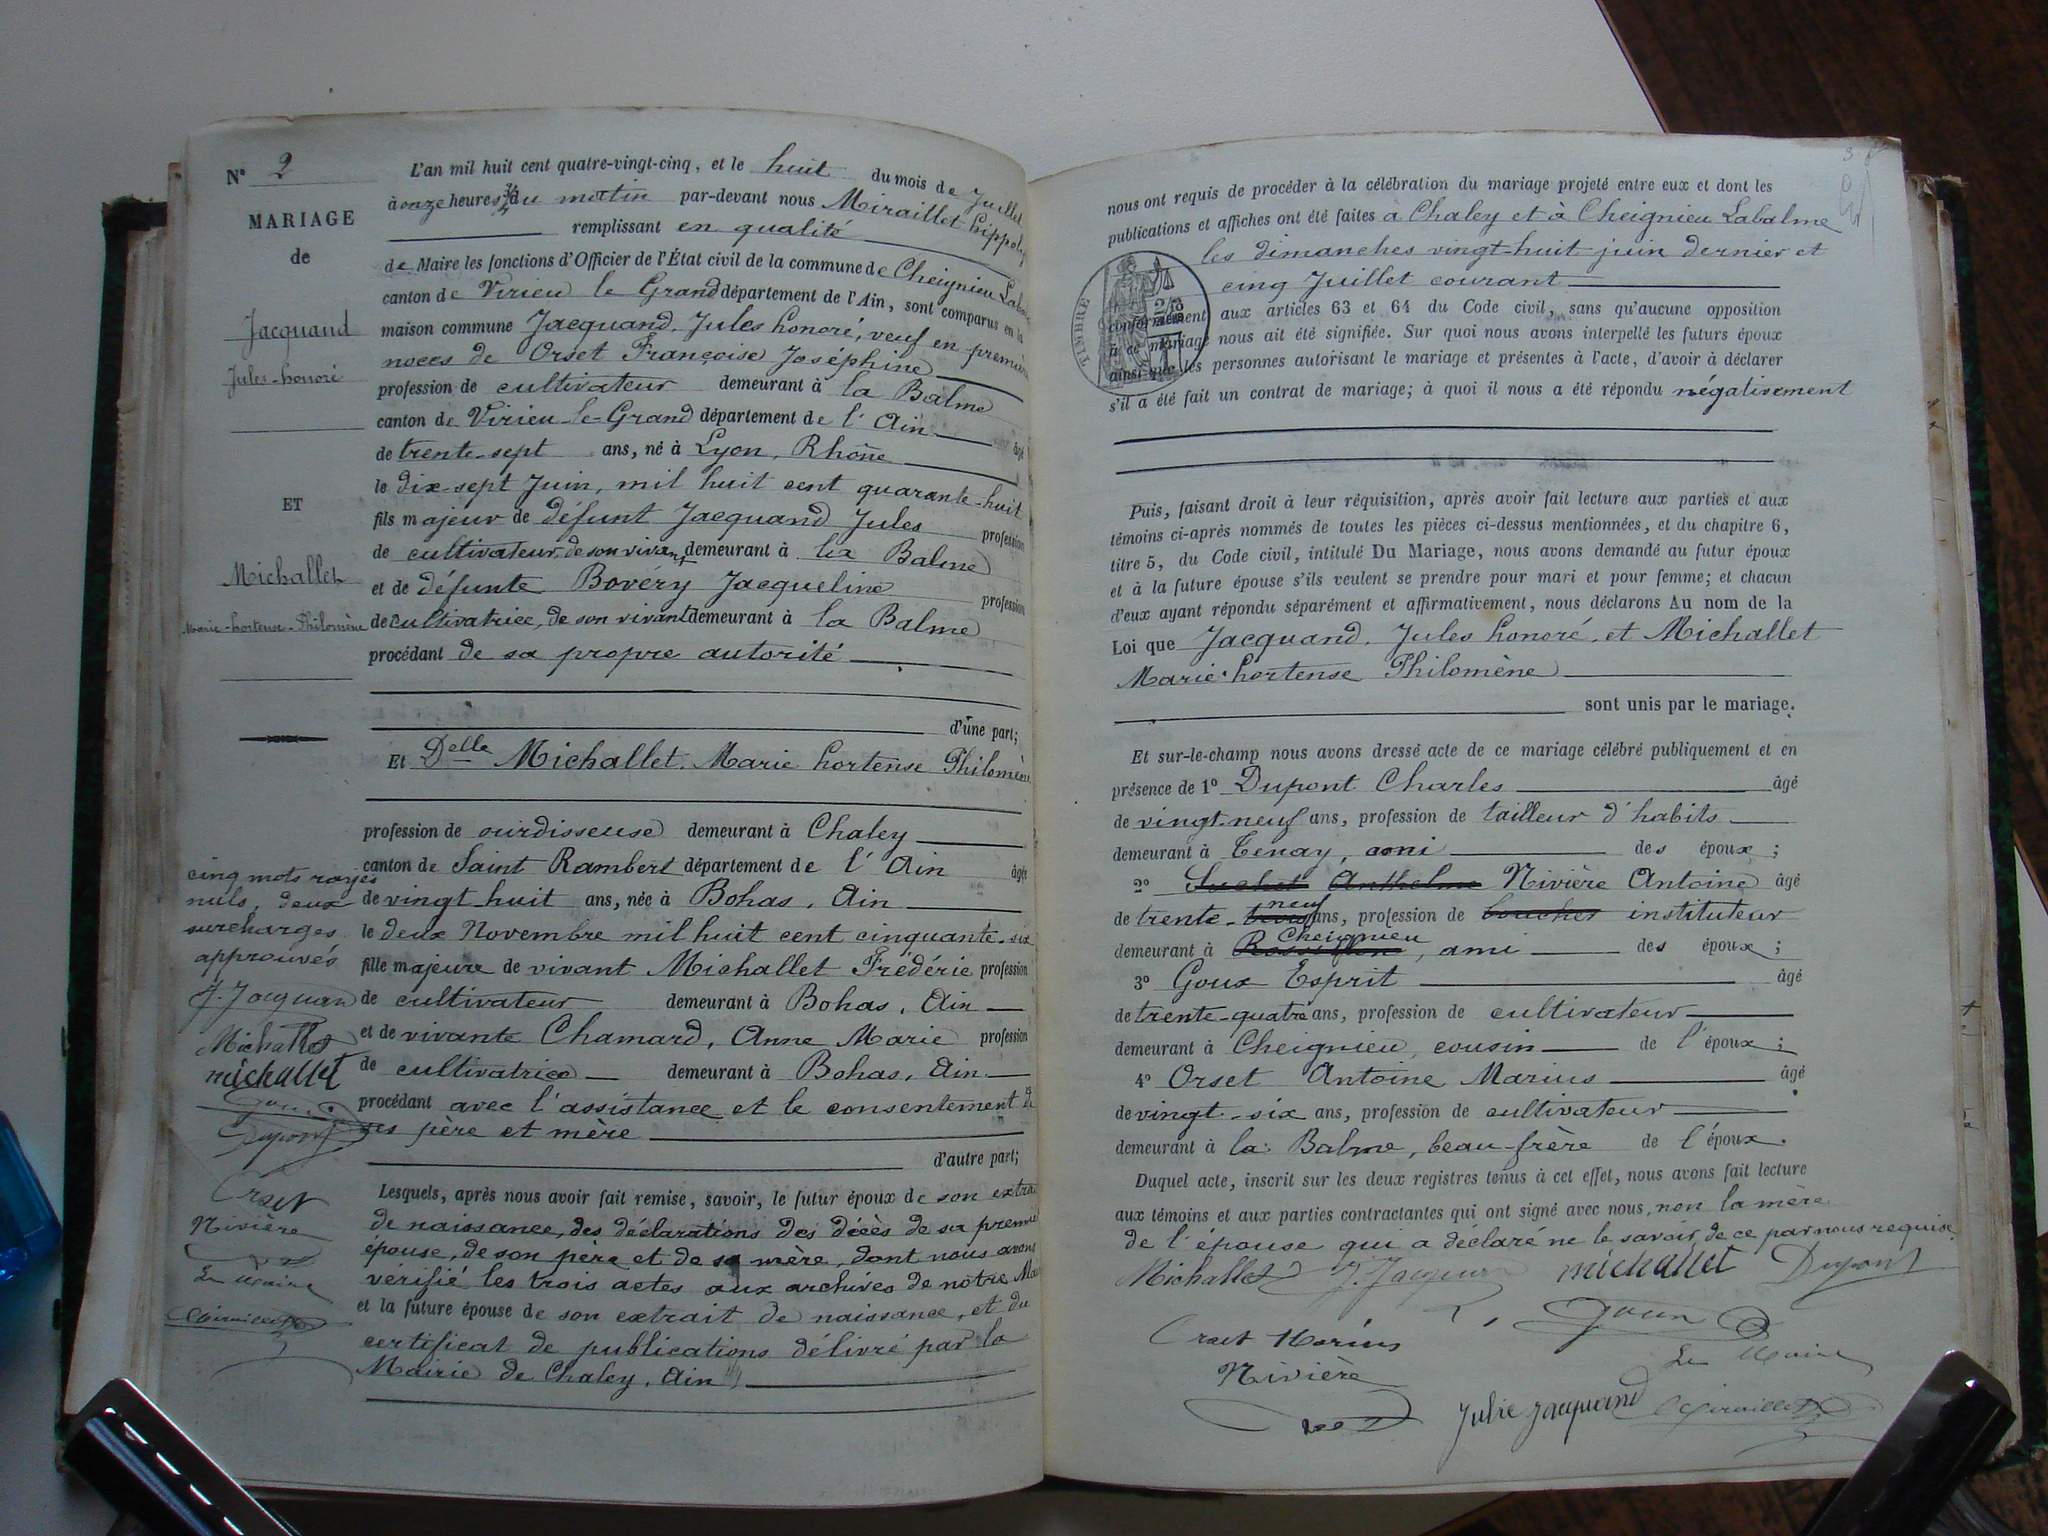 N° 2
MARIAGE
de
Jacquand
Jules-honoré
ET
Michallet
Marie-hortense-Philomène
cinq mots rayés
nuls, deux
surcharges
approuvés
J. Jacquand
Michallet
michallet
Goux
Dupont
Orset
Nivière
Le Maire
Miraillet
L'an mil huit cent quatre-vingt-cinq, et le huit du mois de Juillet
à onze heures 3/4 du matin par-devant nous Miraillet hippoly
remplissant en qualité
de Maire les fonctions d'Officier de l'État civil de la commune de Cheignieu Laba
canton de Virieu le Grand département de l'Ain, sont comparus en la
maison commune Jacquand, Jules honoré, veuf en première
noces de Orset Françoise Joséphine
profession de cultivateur demeurant à la Balme
canton de Virieu-le-Grand département de l'Ain âgé
de trente-sept ans, né à Lyon, Rhône
le dix-sept Juin, mil huit cent quarante-huit
fils majeur de défunt Jacquand Jules profession
de cultivateur, de son vivant demeurant à la Balme
et de défunte Bovéry Jacqueline profession
de cultivatrice, de son vivant demeurant à la Balme
procédant de sa propre autorité
d'une part;
Et Delle Michallet. Marie hortense Philomène
profession de ourdisseuse demeurant à Chaley
canton de Saint Rambert département de l'Ain âgée
de vingt huit ans, née à Bohas, Ain
le deux Novembre mil huit cent cinquante-six
fille majeure de vivant Michallet Frédéric profession
de cultivateur demeurant à Bohas, Ain
et de vivante Chamard, Anne Marie profession
de cultivatrice demeurant à Bohas, Ain
procédant avec l'assistance et le consentement de
ses père et mère
d'autre part;
Lesquels, après nous avoir fait remise, savoir, le futur époux de son extra
de naissance, des déclarations des décès de sa premiè
épouse, de son père et de sa mère, dont nous avons
vérifié les trois actes aux archives de notre Mai
et la future épouse de son extrait de naissance, et du
certificat de publications délivré par la
Mairie de Chaley, Ain
3
nous ont requis de procéder à la célébration du mariage projeté entre eux et dont les
publications et affiches ont été faites à Chaley et à Cheignieu Labalme
les dimanches vingt-huit juin dernier et
cinq Juillet courant
TIMBRE
conformément aux articles 63 et 64 du Code civil, sans qu'aucune opposition
à ce mariage nous ait été signifiée. Sur quoi nous avons interpellé les futurs époux
ainsi que les personnes autorisant le mariage et présentes à l'acte, d'avoir à déclarer
s'il a été fait un contrat de mariage; à quoi il nous a été répondu négativement
Puis, faisant droit à leur réquisition, après avoir fait lecture aux parties et aux
témoins ci-après nommés de toutes les pièces ci-dessus mentionnées, et du chapitre 6,
titre 5, du Code civil, intitulé Du Mariage, nous avons demandé au futur époux
et à la future épouse s'ils veulent se prendre pour mari et pour femme; et chacun
d'eux ayant répondu séparément et affirmativement, nous déclarons Au nom de la
Loi que Jacquand. Jules honoré, et Michallet
Marie hortense Philomène
sont unis par le mariage.
Et sur-le-champ nous avons dressé acte de ce mariage célébré publiquement et en
présence de 1° Dupont Charles âgé
de vingt-neuf ans, profession de tailleur d'habits
demeurant à Tenay, ami des époux;
2° Suchet Anthelme Nivière Antoine âgé
de trente-trois neuf ans, profession de boucher instituteur
demeurant à Rossillon Cheignieu, ami des époux;
3° Goux Esprit âgé
de trente-quatre ans, profession de cultivateur
demeurant à Cheignieu, cousin de l'époux;
4° Orset Antoine Marius âgé
de vingt-six ans, profession de cultivateur
demeurant à la Balme, beau-frère de l'époux.
Duquel acte, inscrit sur les deux registres tenus à cet effet, nous avons fait lecture
aux témoins et aux parties contractantes qui ont signé avec nous, non la mère
de l'épouse qui a déclaré ne le savoir, de ce par nous requise.
Michallet J. Jacquand michallet Dupont
Goux
Orset Marius Le Maire
Nivière
Julie Jacquand Miraillet